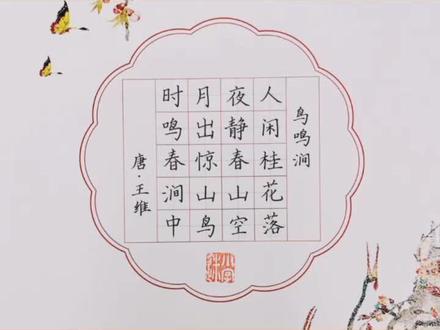 鸟鸣涧
人闲桂花落
夜静春山空
月出惊山鸟
时鸣春涧中
唐·王维